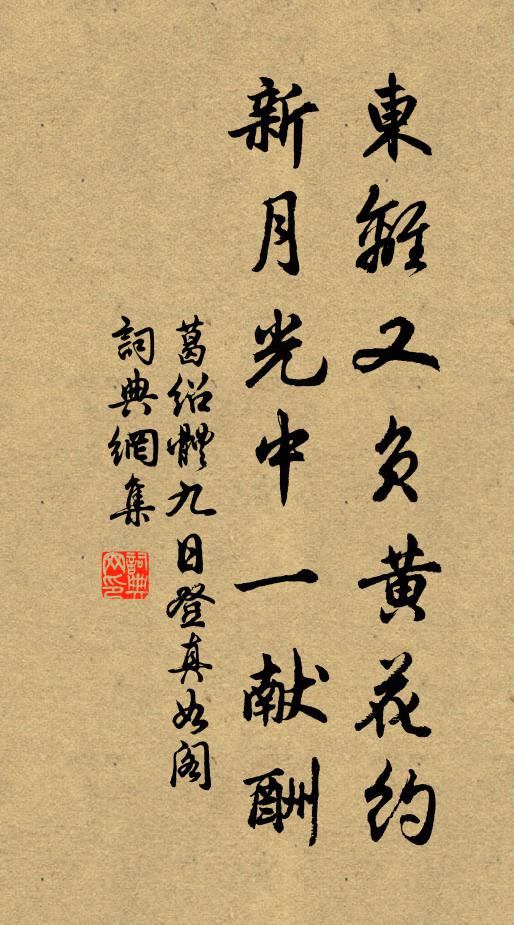 東離又負黃花約
新月光中一献酬
葛紹體九日登真如閣
詞典網集
詞典網印